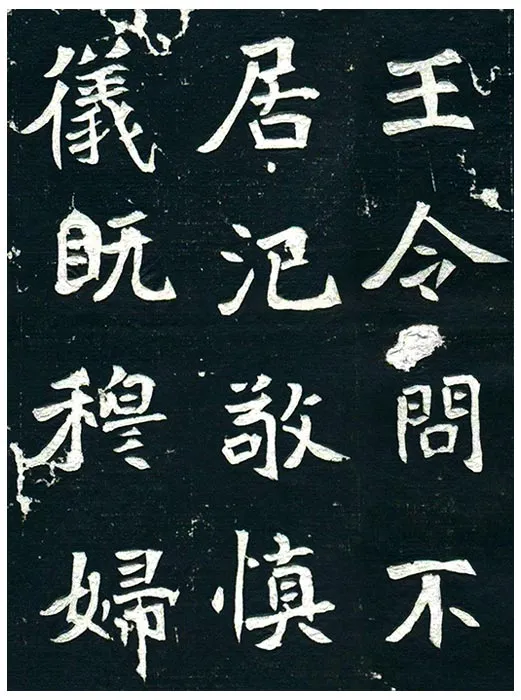 王令問不
居汜敬慎
儀既穆婦